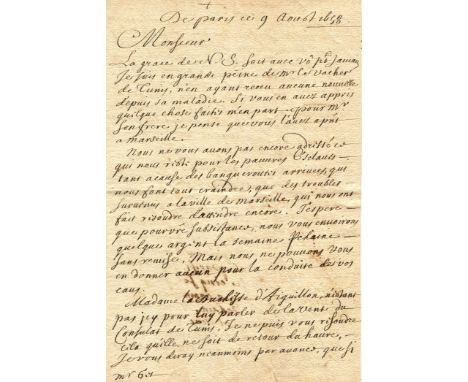 De paris ce 9 Aoust 1658
Monsieur
La grace de N. S. soit avec vre pō Jamais
Je suis en grande peine de mr le vacher
de Tunis, n'en ayant receu aucune nouvelle
depuis sa maladie. Si vous en avez appris
quelque chose faites m'en part. et pour mr
son frere je pense que vous l'avez apris
a marseille.
Nous ne vous avons pas encore adressé ce
qui nous reste pour les pauvres Esclaves
tant a cause des banqueroutes arrivees, qui
nous font tout craindre, que des troubles
survenus a la ville de Marseille, qui nous ont
fait résoudre d'atendre encore. J'espere
que pour vre subsistance, nous vous envoirons
quelque argent la semaine prochaine
sans remise. Mais nous ne pouvons vous
en donner aucun pour la conduite de vos
eaus.
Madame la duchesse d'Aiguillon, n'estant
pas icy pour luy parler de la vente du
Consulat de Tunis. Je ne puis vous résoudre
cela qu'elle ne soit de retour du havre,
Je vous diray neanmoins par avance, que si
mr